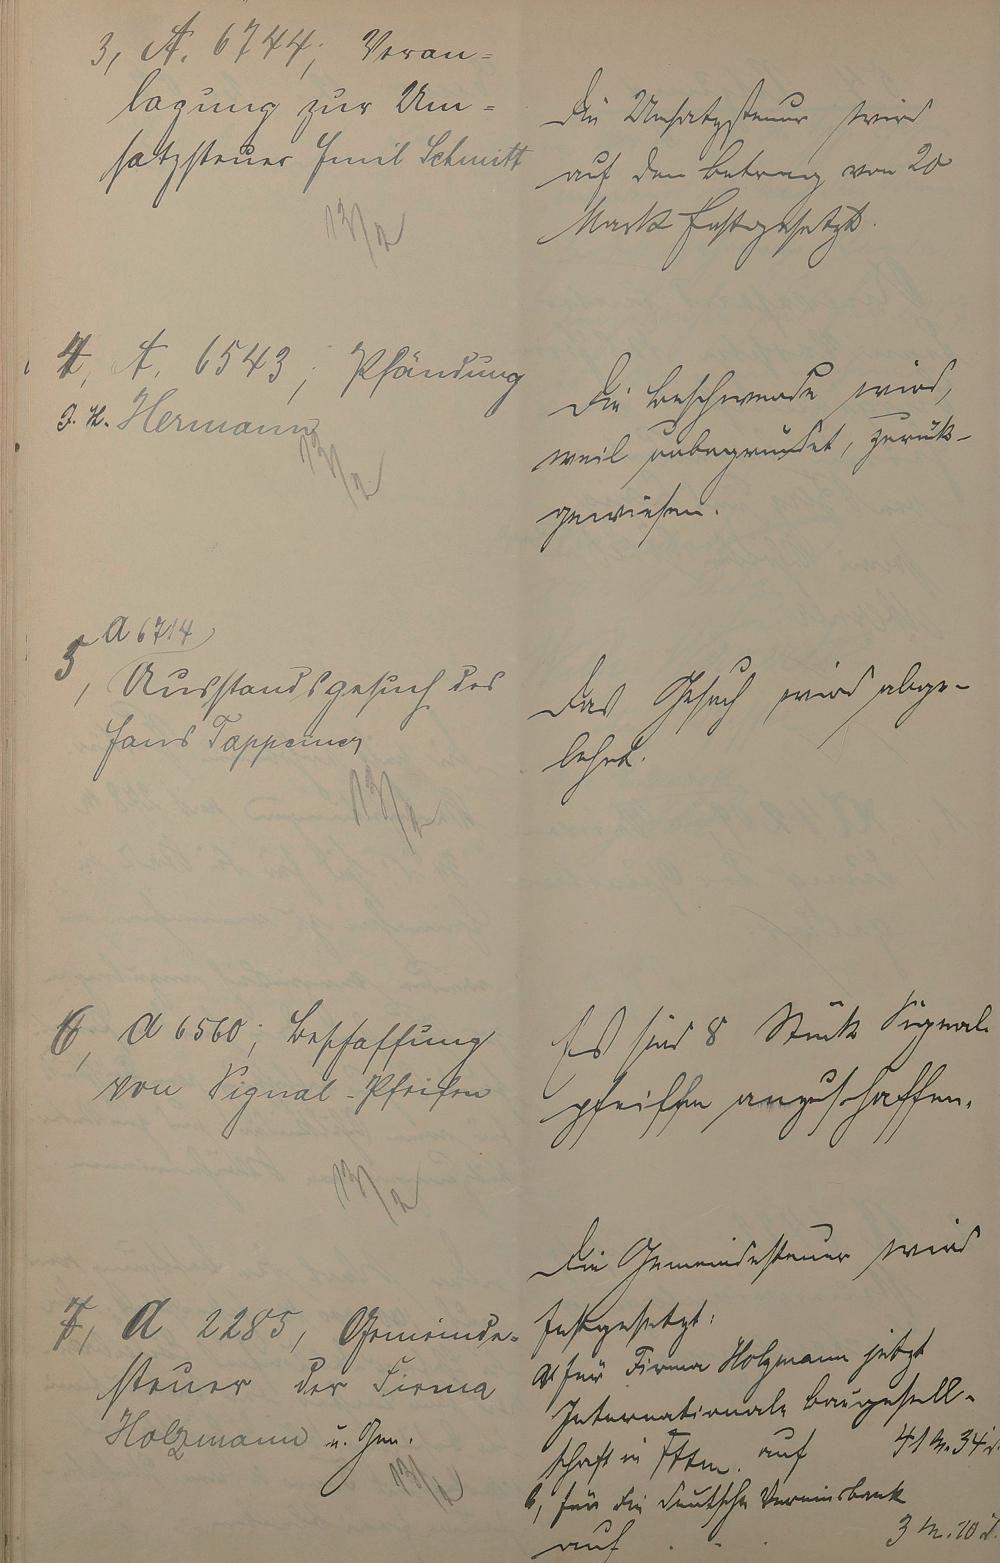 3, A. 6744; Veran=
lagung zur Um=
satzsteuer Emil Schmitt
13/2
Die Umsatzsteuer wird
auf den Betrag von 20
Mark festgesetzt.
4, A. 6543; Pfändung
J. H. Hermann
13/2
Die Beschwerde wird,
weil unbegründet, zurük-
gewiesen.
A 6714
5, Ausstandsgesuch des
Hans Tappeiner
13/2
Das Gesuch wird abge-
lehnt.
6, A 6560; Beschaffung
von Signal-Pfeifen
13/2
Es sind 8 Stück Signal
pfeiffen anzuschaffen.
7, A 2285, Gemeinde-
steuer der Firma
Holzmann u. Gen.
13/2
Die Gemeindesteuer wird
festgesetzt:
a, für Firma Holzmann jetzt
Internationale Baugesell-
schaft in auf 41 M. 34 d.
b, für die deutsche Vereinsbank
auf . - . 3 M. 10 d.